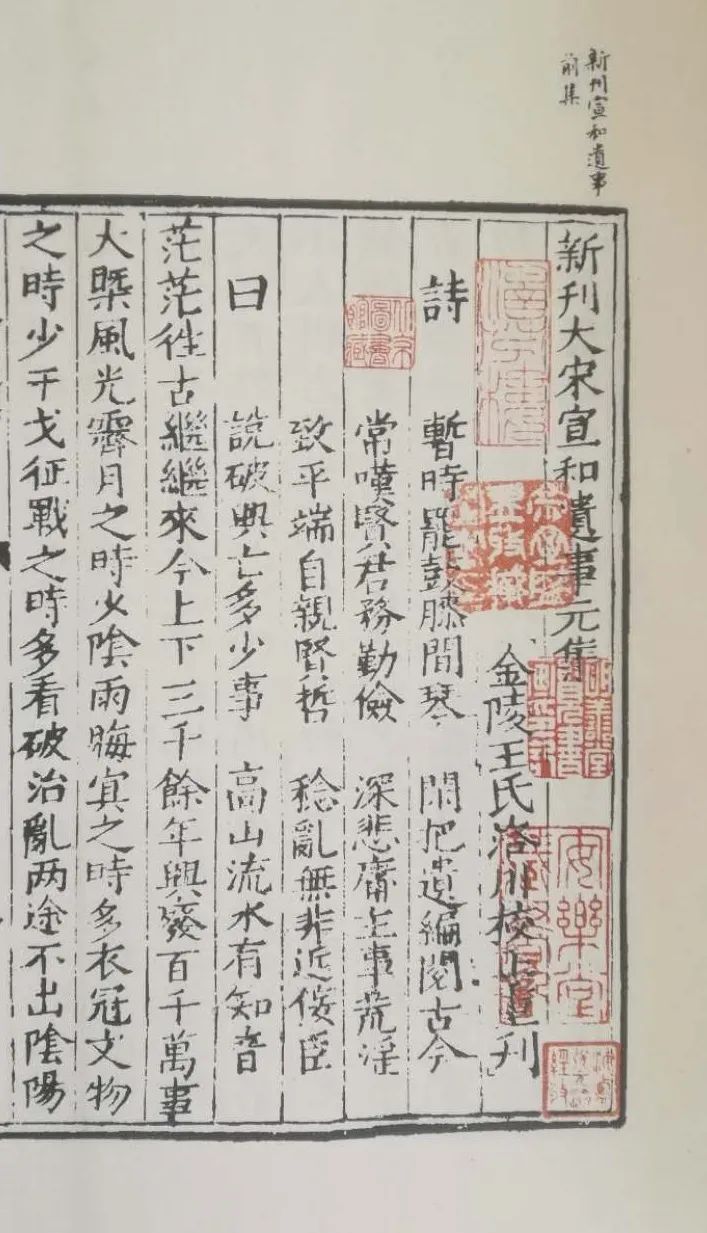 新刊宣和遺事
前集
新刊大宋宣和遺事元集
金陵王氏洛川校正重刊
詩 暫時罷鼓膝間琴 閑把遺編閱古今
常嘆賢君務勤儉 深悲庸主事荒淫
致平端自親賢哲 稔亂無非近佞臣
曰 說破興亡多少事 高山流水有知音
茫茫徃古繼繼來今上下三千餘年興廢百千萬事
大槩風光霽月之時少陰雨晦冥之時多衣冠文物
之時少干戈征戰之時多看破治亂两途不出陰陽
安樂堂